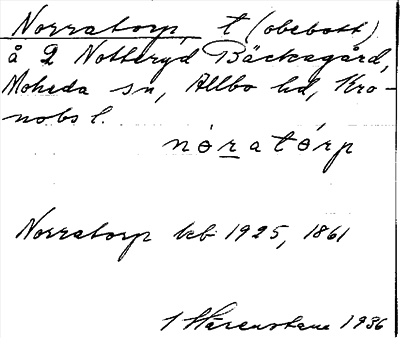 Norratorp t (obebott)
å 2 Notteryd Bäcksgård,
Moheda sn, Allbo hd, Kro-
nobs l.
nòratórp
Norratorp kb 1925, 1861
1936